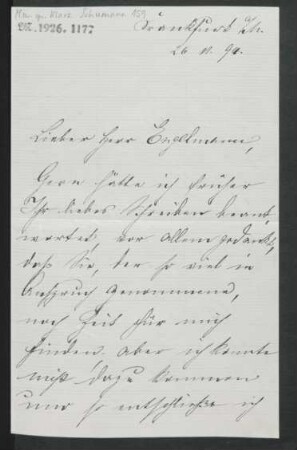 Schumann 159
DL. 1926. 1177
Frankfurt a/M.
26. 11. 90.
Lieber Herr Engelmann,
Gern hätte ich früher
Ihr liebes Schreiben beant,
wortet, vor Allem gedankt,
daß Sie, der so viel in
Anspruch Genommene,
noch Zeit für mich
finden, aber ich konnte
nicht dazu kommen
und so entschließe ich